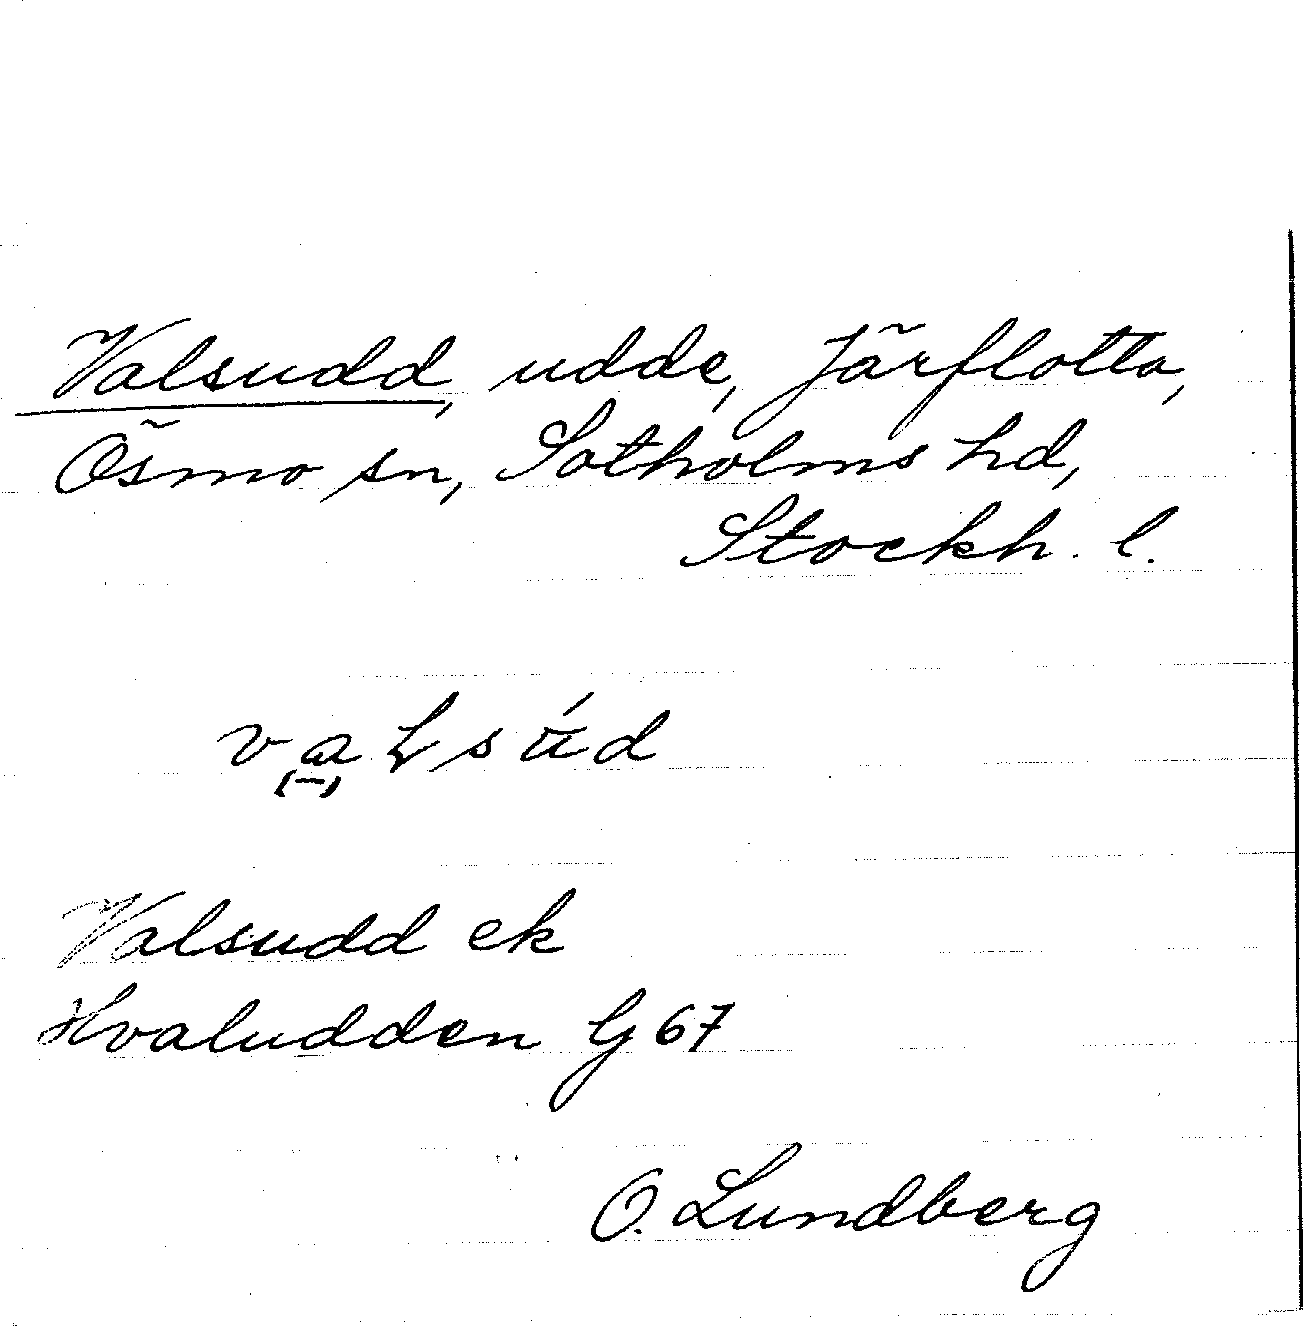 Valsudd, udde, Järflotta,
Ösmo sn, Sotholms hd,
Stockh. l.
Valsudd ek
Hvaludden Gj 67
O. Lundberg